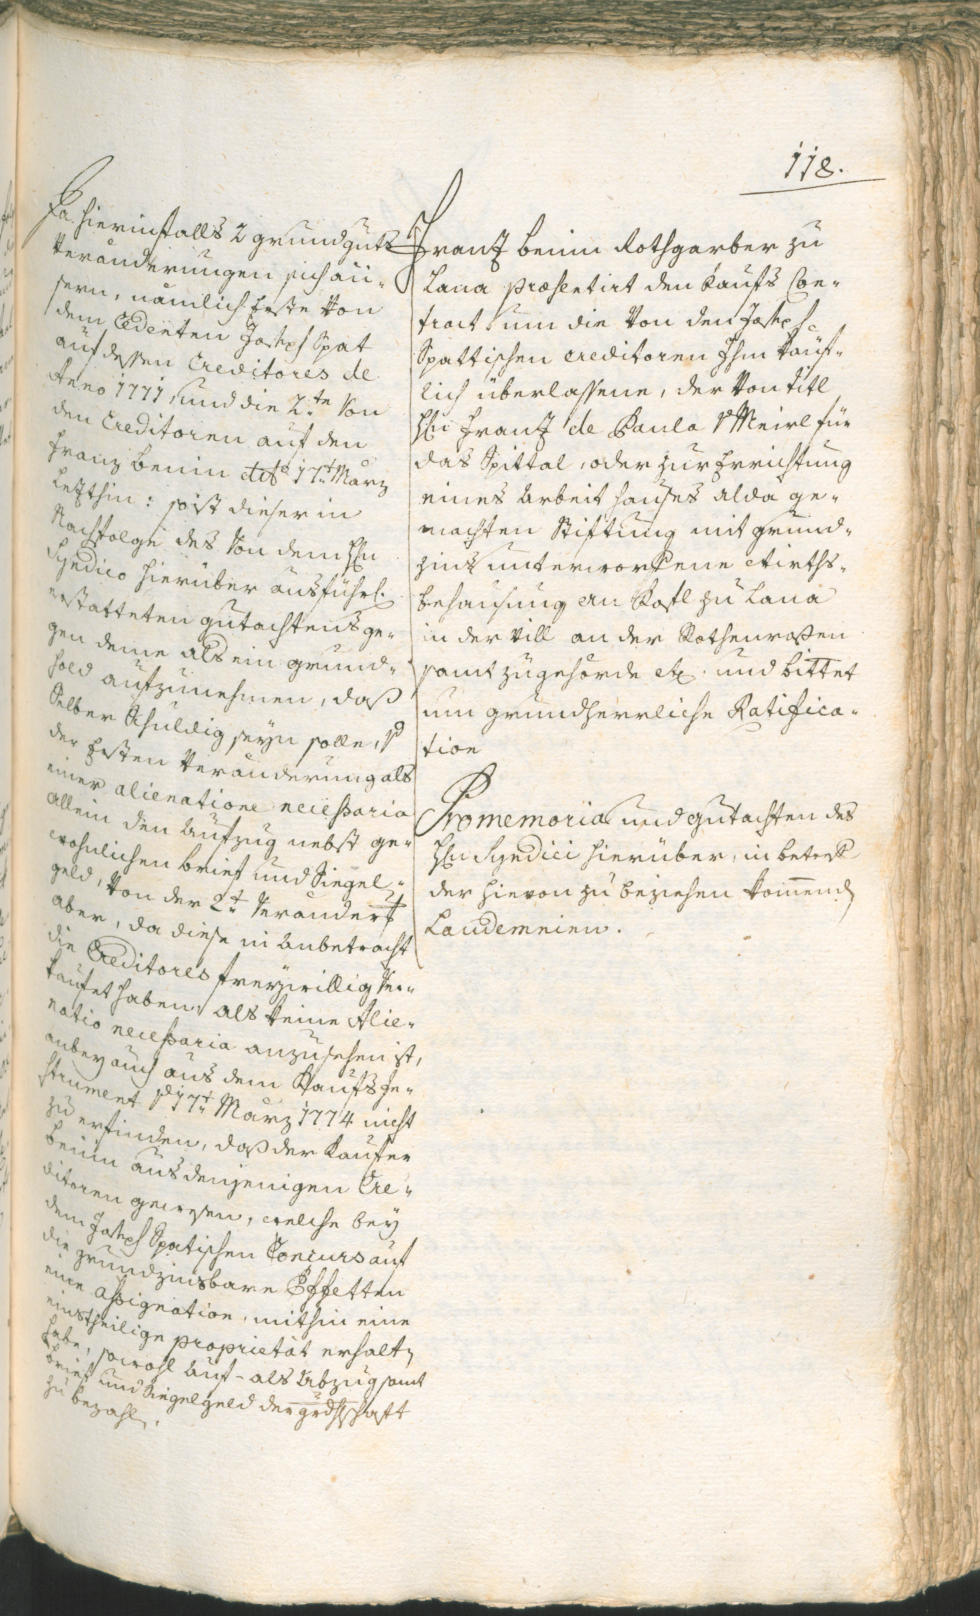 118.
Da hierinfalls 2 grundguts
Veränderungen sich äü-
sern, nämlich Erste von
dem Cedenten Joseph Spat
auf dessen Creditores de
Anno 1771, und die 2.te von
den Creditoren auf den
Franz benin 17.t März
letzthin: so ist dieser in
Nachfolge des von dem Hln
Syndico hierüber ausführl.
erstatteten gutachtens ge-
gen deme als ein grund-
hold aufzunehmen, daß
Selber schuldig seyn solle, von
der Ersten Veränderung als
einer alienatione necessaria
allein den Aufzug nebst ge-
wohnlichen brief und Siegel-
geld, Von der 2.t Veränder
aber, da diese in Anbetracht
die Creditores freywillig ver-
kaufet haben, als keine Alie-
natio necessaria anzusehen ist,
anbey auch aus dem Kaufs In-
strument 17.t März 1774 nicht
zu erfinden, daß der Kaufer
benin aus denjenigen Cre-
ditoren gewesen, welche bey
dem Joseph Spatischen Concurs auf
die grundzinsbare Effetten
eine assignation, mithin eine
einstheilige proprietät erhalt
habe, sowohl Auf- als Abzug samt
brief und Siegelgeld der
zu bezahl.
Frantz benin Rothgarber zu
Lana præsentirt den Kaufs Con-
tract um die Von den Joseph
Spattischen creditoren Ihm käuf-
lich überlassene, der Von Titl
Hln Frantz de Paula v Meirl für
das Spittal, oder zur Errichtung
eines Arbeit hauses alda ge-
machten Stiftung mit grund-
zins unterworfene Wirths-
behausung am Rössl zu Lana
in der Vill an der
samt zugehörde etc. und bittet
um grundherrliche Ratifica-
tion
Promemoria und gutachten des
Hln Syndici hierüber, in betreff
der hievon zu beziehen kommend
Laudemien.